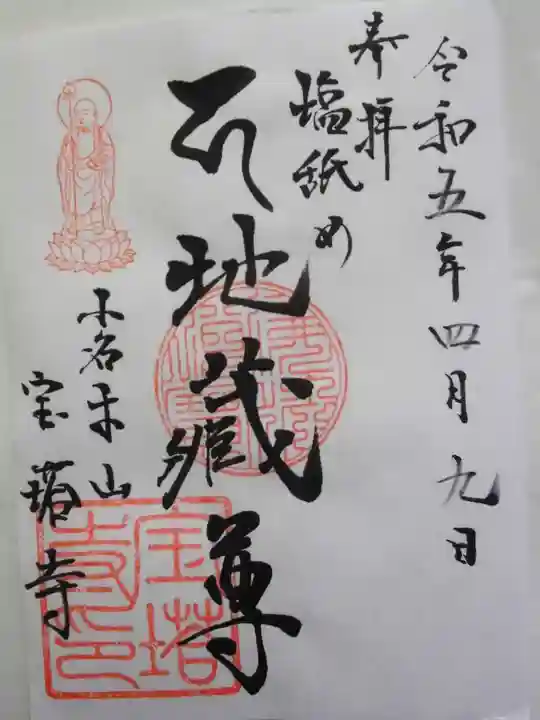 令和五年四月九日
奉拝
塩舐め
地蔵尊
小名木山
宝塔寺
宝塔寺印